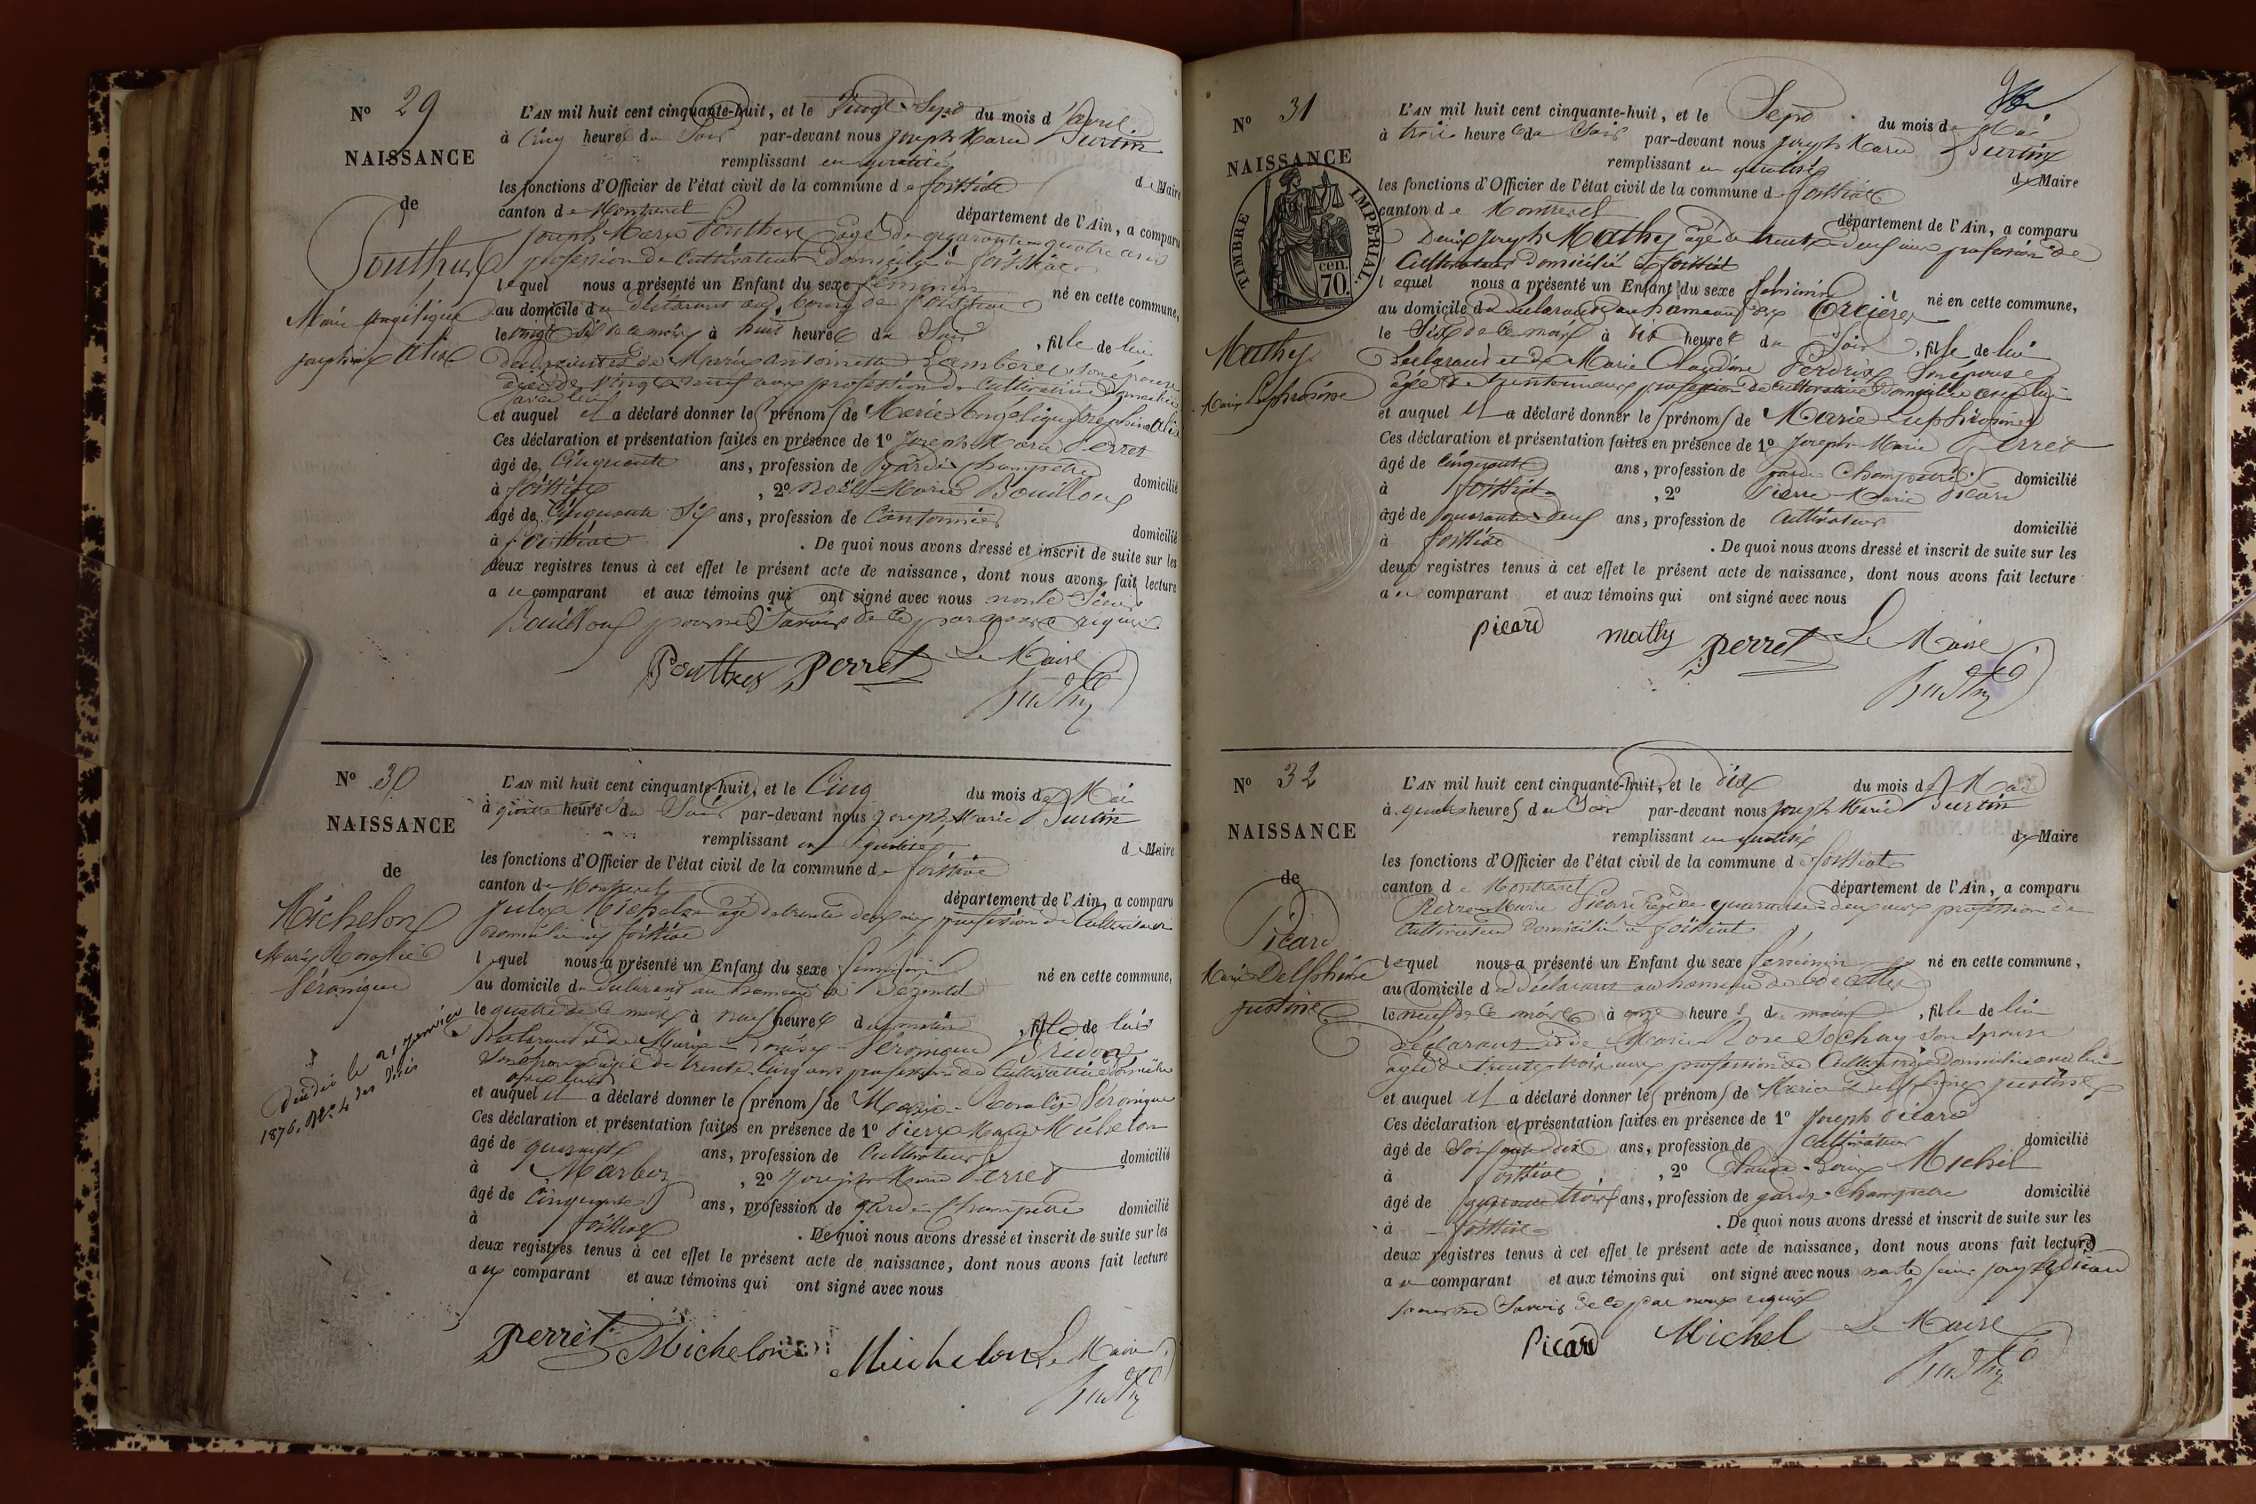 N° 29
NAISSANCE
de
Marie Angélique
L'AN mil huit cent cinquante-huit, et le Vingt-Sept du mois d'avril
à Cinq heures du Soir par-devant nous Joseph Marie Burtin
remplissant en qualité de Maire
les fonctions d'Officier de l'état civil de la commune de foissiat
canton de Montrevel département de l'Ain, a comparu
Joseph Marie Pouthier agé de quarante quatre ans
profession de Cultivateur Domicilié à foissiat
lequel nous a présenté un Enfant du sexe féminin né en cette commune,
au domicile du déclarant au bourg de foissiat
le vingt Six de ce mois à huit heures du Soir, fille de lui
déclarant et de Marie Antoinette son épouse
agée de Vingt neuf ans profession de Cultivatrice Domiciliée
avec lui
et auquel il a déclaré donner les prénoms de Marie Angélique
Ces déclaration et présentation faites en présence de 1° Joseph Marie Perret
âgé de Cinquante ans, profession de garde champêtre domicilié
à foissiat, 2° Noël Marie Bouilloux
âgé de Cinquante Six ans, profession de Cantonnier domicilié
à foissiat. De quoi nous avons dressé et inscrit de suite sur les
deux registres tenus à cet effet le présent acte de naissance, dont nous avons fait lecture
au comparant et aux témoins qui ont signé avec nous non le Sieur
Bouilloux pour ne Savoir de ce par nous requis
Perret Le Maire
Burtin
N° 30
NAISSANCE
de
Michelon
Marie Rosalie
Véronique
Décédée le 21 janvier
1876. N° 4 des Décès
L'AN mil huit cent cinquante-huit, et le Cinq du mois de Mai
à quatre heures du Soir par-devant nous Joseph Marie Burtin
remplissant en qualité de Maire
les fonctions d'Officier de l'état civil de la commune de foissiat
canton de Montrevel département de l'Ain, a comparu
Michelon agé de trente deux ans profession de Cultivateur
Domicilié à foissiat
lequel nous a présenté un Enfant du sexe féminin né en cette commune,
au domicile du déclarant au hameau de
le quatre de ce mois à neuf heures du matin, fille de lui
déclarant et de Marie Véronique
Son épouse agée de trente cinq ans profession de Cultivatrice Domiciliée
avec lui
et auquel il a déclaré donner les prénoms de Marie Rosalie Véronique
Ces déclaration et présentation faites en présence de 1° Pierre Marie Michelon
âgé de ans, profession de Cultivateur domicilié
à Marboz, 2° Joseph Marie Perret
âgé de Cinquante ans, profession de garde Champêtre domicilié
à foissiat. De quoi nous avons dressé et inscrit de suite sur les
deux registres tenus à cet effet le présent acte de naissance, dont nous avons fait lecture
au comparant et aux témoins qui ont signé avec nous
Perret Michelon Michelon Le Maire
Burtin
N° 31
NAISSANCE
TIMBRE IMPERIAL
70 cen.
Mathy
Marie Euphrosine
L'AN mil huit cent cinquante-huit, et le Sept du mois de Mai
à trois heures du Soir par-devant nous Joseph Marie Burtin
remplissant en qualité de Maire
les fonctions d'Officier de l'état civil de la commune de foissiat
canton de Montrevel département de l'Ain, a comparu
Denis Joseph Mathy agé de trente deux ans profession de
Cultivateur Domicilié à foissiat
lequel nous a présenté un Enfant du sexe féminin né en cette commune,
au domicile du déclarant au hameau des
le Six de ce mois à dix heures du Soir, fille de lui
déclarant et de Marie Claudine Perdrix Son épouse
agée de trente un ans profession de cultivatrice Domiciliée avec lui
et auquel il a déclaré donner les prénoms de Marie Euphrosine
Ces déclaration et présentation faites en présence de 1° Joseph Marie Perret
âgé de cinquante ans, profession de garde Champêtre domicilié
à foissiat, 2° Pierre Marie Picard
âgé de quarante deux ans, profession de Cultivateur domicilié
à foissiat. De quoi nous avons dressé et inscrit de suite sur les
deux registres tenus à cet effet le présent acte de naissance, dont nous avons fait lecture
au comparant et aux témoins qui ont signé avec nous
Picard mathy Perret Le Maire
Burtin
N° 32
NAISSANCE
de
Picard
Marie Delphine
Justine
L'AN mil huit cent cinquante-huit, et le dix du mois de Mai
à quatre heures du Soir par-devant nous Joseph Marie Burtin
remplissant en qualité de Maire
les fonctions d'Officier de l'état civil de la commune de foissiat
canton de Montrevel département de l'Ain, a comparu
Pierre Marie Picard agé de quarante deux ans profession de
Cultivateur Domicilié à foissiat
lequel nous a présenté un Enfant du sexe féminin né en cette commune,
au domicile du déclarant au hameau de
le neuf de ce mois à onze heures du matin, fille de lui
déclarant et de Marie Rose Sochay son épouse
agée de trente trois ans profession de Cultivatrice Domiciliée avec lui
et auquel il a déclaré donner les prénoms de Marie Delphine Justine
Ces déclaration et présentation faites en présence de 1° Joseph Picard
âgé de Soixante dix ans, profession de Cultivateur domicilié
à foissiat, 2° Claude Louis Michel
âgé de quarante trois ans, profession de garde Champêtre domicilié
à foissiat. De quoi nous avons dressé et inscrit de suite sur les
deux registres tenus à cet effet le présent acte de naissance, dont nous avons fait lecture
au comparant et aux témoins qui ont signé avec nous non le Sieur Joseph Picard
pour ne Savoir de ce par nous requis
Picard Michel Le Maire
Burtin